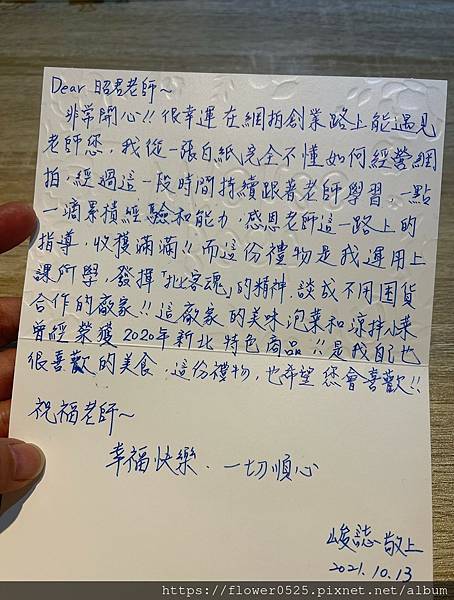 Dear 昭君老師~
非常開心!! 很幸運在網拍創業路上能遇見
老師您，我從一張白紙完全不懂如何經營網
拍，經過這一段時間持續跟著老師學習，一點
一滴累積經驗和能力，感恩老師這一路上的
指導，收獲滿滿!! 而這份禮物是我運用上
課所學，發揮「扎客魂」的精神，談成不用囤貨
合作的廠家!! 這廠家的美味泡菜和涼拌小菜
曾經榮獲2020年新北特色商品!! 是我自己也
很喜歡的美食，這份禮物，也希望您會喜歡!!
祝福老師~
幸福快樂．一切順心
峻誌敬上
2021.10.13
https://flower0525.pixnet.net/album